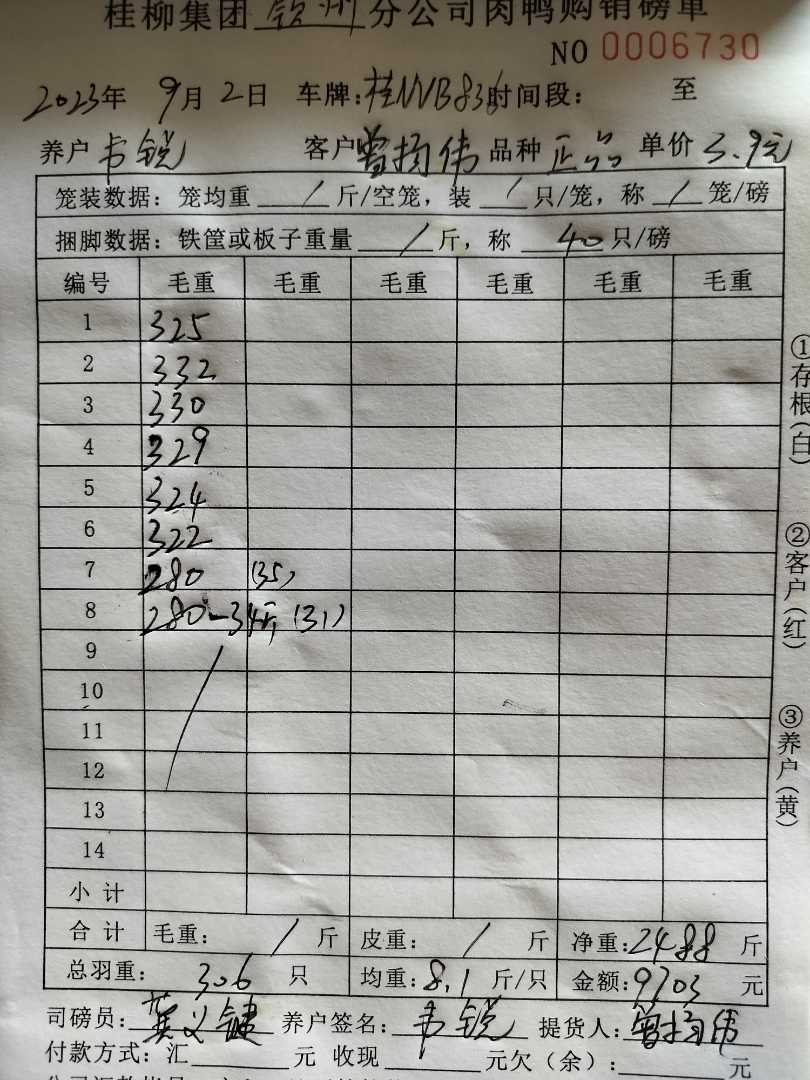 桂柳集团 钦州 分公司肉鸭购销磅单
NO 0006730
2023年 9月 2日 车牌:桂NVB836 时间段: 至
养户 韦锐 客户 曾扬伟 品种 正品 单价 3.9元
笼装数据: 笼均重 / 斤/空笼, 装 / 只/笼, 称 / 笼/磅
捆脚数据: 铁筐或板子重量 / 斤, 称 40 只/磅
编号 毛重 毛重 毛重 毛重 毛重 毛重
1 325
2 332
3 330
4 329
5 324
6 322
7 280 (35)
8 280-34斤 (31)
9
10
11
12
13
14
小计
合计 毛重: / 斤 皮重: / 斤 净重:2488 斤
总羽重: 306 只 均重:8.1 斤/只 金额:9703 元
司磅员: 义键 养户签名: 韦锐 提货人: 曾扬伟
付款方式: 汇 元 收现 元欠(余): 元
①存根(白)
②客户(红)
③养户(黄)